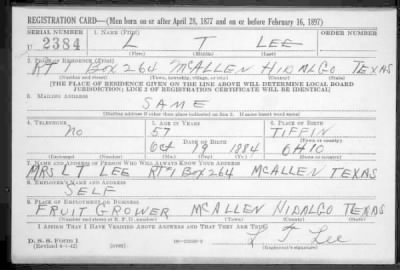 REGISTRATION CARD—(Men born on or after April 28, 1877 and on or before February 16, 1897)
SERIAL NUMBER 1. NAME (Print) ORDER NUMBER
U 2384 L T LEE
(First) (Middle) (Last)
2. PLACE OF RESIDENCE (Print)
RT 1 BOX 264 MCALLEN HIDALGO TEXAS
(Number and street) (Town, township, village, or city) (County) (State)
[THE PLACE OF RESIDENCE GIVEN ON THE LINE ABOVE WILL DETERMINE LOCAL BOARD
JURISDICTION; LINE 2 OF REGISTRATION CERTIFICATE WILL BE IDENTICAL]
3. MAILING ADDRESS
SAME
[Mailing address if other than place indicated on line 2. If same insert word same]
4. TELEPHONE 5. AGE IN YEARS 6. PLACE OF BIRTH
NO 57 TIFFIN
DATE OF BIRTH (Town or county)
Oct 19 1884 OHIO
(Exchange) (Number) (Mo.) (Day) (Yr.) (State or country)
7. NAME AND ADDRESS OF PERSON WHO WILL ALWAYS KNOW YOUR ADDRESS
MRS L T LEE RT#1 BOX 264 MCALLEN TEXAS
8. EMPLOYER'S NAME AND ADDRESS
SELF
9. PLACE OF EMPLOYMENT OR BUSINESS
FRUIT GROWER MCALLEN HIDALGO TEXAS
(Number and street or R. F. D. number) (Town) (County) (State)
I AFFIRM THAT I HAVE VERIFIED ABOVE ANSWERS AND THAT THEY ARE TRUE.
D. S. S. Form 1 L T Lee
(Revised 4-1-42) (over) (Registrant's signature)